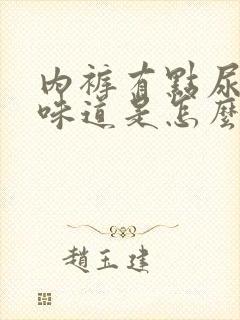 內褲有點尿
味道是怎麼
趙玉建